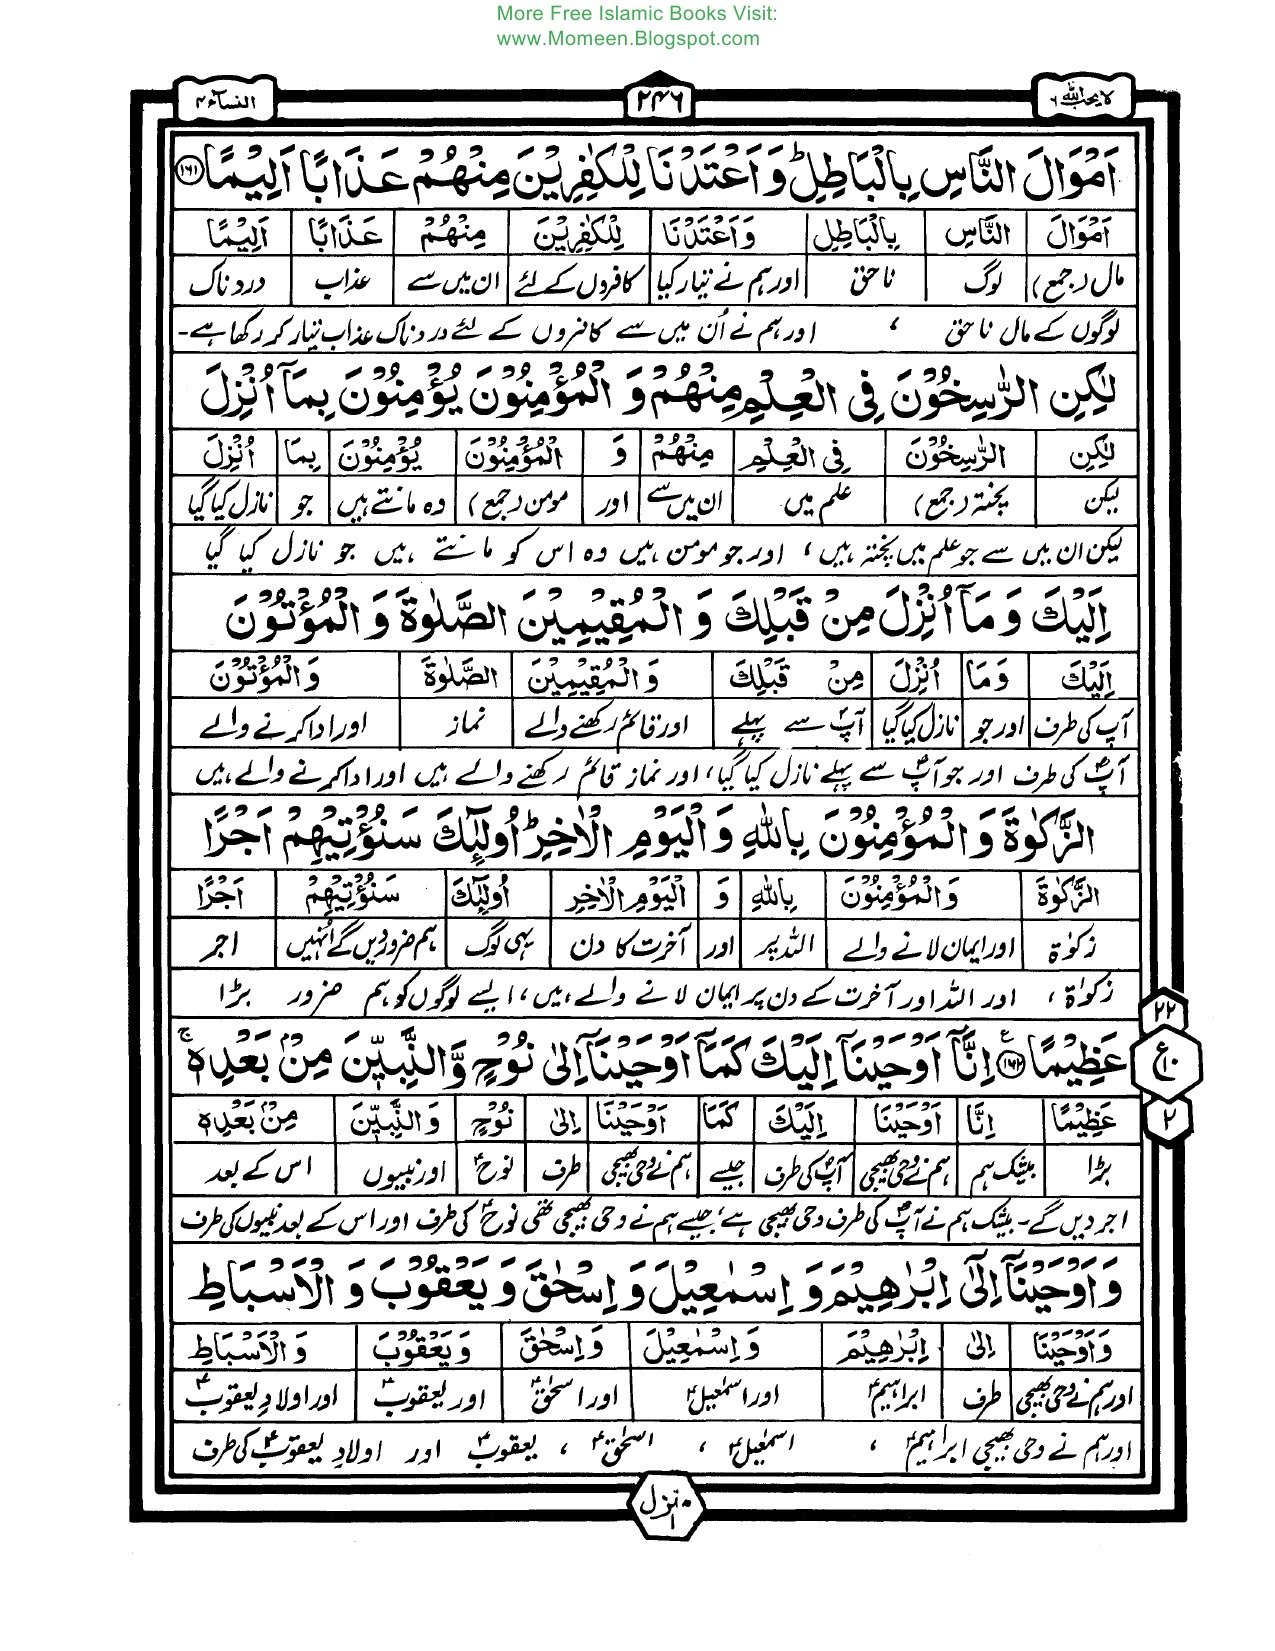 More Free Islamic Books Visit:
www.Momeen.Blogspot.com
لا یحب اللہ ۶ ۲۴۶ النساء ۴
اَمْوَالَ النَّاسِ بِالْبَاطِلِ ؕ وَ اَعْتَدْنَا لِلْكٰفِرِیْنَ مِنْهُمْ عَذَابًا اَلِیْمًا ۱۶۱
اَمْوَالَ النَّاسِ بِالْبَاطِلِ وَاَعْتَدْنَا لِلْكٰفِرِیْنَ مِنْهُمْ عَذَابًا اَلِیْمًا
مال (جمع) لوگ ناحق اور ہم نے تیار کیا کافروں کے لئے ان میں سے عذاب دردناک
لوگوں کے مال ناحق ، اور ہم نے اُن میں سے کافروں کے لئے دردناک عذاب تیار کر رکھا ہے۔
لٰكِنِ الرّٰسِخُوْنَ فِی الْعِلْمِ مِنْهُمْ وَ الْمُؤْمِنُوْنَ یُؤْمِنُوْنَ بِمَاۤ اُنْزِلَ
لٰكِنِ الرّٰسِخُوْنَ فِی الْعِلْمِ مِنْهُمْ وَ الْمُؤْمِنُوْنَ یُؤْمِنُوْنَ بِمَا اُنْزِلَ
لیکن پختہ (جمع) علم میں ان میں سے اور مومن (جمع) وہ مانتے ہیں جو نازل کیا گیا
لیکن ان میں سے جو علم میں پختہ ہیں ، اور جو مومن ہیں وہ اس کو مانتے ہیں جو نازل کیا گیا
اِلَیْكَ وَ مَاۤ اُنْزِلَ مِنْ قَبْلِكَ وَ الْمُقِیْمِیْنَ الصَّلٰوةَ وَ الْمُؤْتُوْنَ
اِلَیْكَ وَمَا اُنْزِلَ مِنْ قَبْلِكَ وَالْمُقِیْمِیْنَ الصَّلٰوةَ وَالْمُؤْتُوْنَ
آپؐ کی طرف اور جو نازل کیا گیا آپؐ سے پہلے اور قائم رکھنے والے نماز اور ادا کرنے والے
آپؐ کی طرف اور جو آپؐ سے پہلے نازل کیا گیا ، اور نماز قائم رکھنے والے ہیں اور ادا کرنے والے ہیں
الزَّكٰوةَ وَ الْمُؤْمِنُوْنَ بِاللّٰهِ وَ الْیَوْمِ الْاٰخِرِ ؕ اُولٰٓئِكَ سَنُؤْتِیْهِمْ اَجْرًا
الزَّكٰوةَ وَالْمُؤْمِنُوْنَ بِاللّٰهِ وَ الْیَوْمِ الْاٰخِرِ اُولٰٓئِكَ سَنُؤْتِیْهِمْ اَجْرًا
زکوٰۃ اور ایمان لانے والے اللہ پر اور آخرت کا دن یہی لوگ ہم ضرور دیں گے اُنہیں اجر
زکوٰۃ ، اور اللہ اور آخرت کے دن پر ایمان لانے والے ہیں ، ایسے لوگوں کو ہم ضرور بڑا
۲۲
عَظِیْمًا ۱۶۲ ع اِنَّاۤ اَوْحَیْنَاۤ اِلَیْكَ كَمَاۤ اَوْحَیْنَاۤ اِلٰی نُوْحٍ وَّالنَّبِیّٖنَ مِنْۢ بَعْدِهٖ ۚ
ع ۱۰
عَظِیْمًا اِنَّا اَوْحَیْنَا اِلَیْكَ كَمَا اَوْحَیْنَا اِلٰی نُوْحٍ وَالنَّبِیّٖنَ مِنْۢ بَعْدِهٖ
۲
بڑا بیشک ہم ہم نے وحی بھیجی آپؐ کی طرف جیسے ہم نے وحی بھیجی طرف نوحؑ اور نبیوں اس کے بعد
اجر دیں گے۔ بیشک ہم نے آپؐ کی طرف وحی بھیجی ہے ، جیسے ہم نے وحی بھیجی تھی نوحؑ کی طرف اور اس کے بعد نبیوں کی طرف
وَ اَوْحَیْنَاۤ اِلٰۤی اِبْرٰهِیْمَ وَ اِسْمٰعِیْلَ وَ اِسْحٰقَ وَ یَعْقُوْبَ وَ الْاَسْبَاطِ
وَ اَوْحَیْنَا اِلٰی اِبْرٰهِیْمَ وَ اِسْمٰعِیْلَ وَ اِسْحٰقَ وَ یَعْقُوْبَ وَ الْاَسْبَاطِ
اور ہم نے وحی بھیجی طرف ابراہیمؑ اور اسمٰعیلؑ اور اسحٰقؑ اور یعقوبؑ اور اولادِ یعقوبؑ
اور ہم نے وحی بھیجی ابراہیمؑ ، اسمٰعیلؑ ، اسحٰقؑ ، یعقوبؑ اور اولادِ یعقوبؑ کی طرف
منزل ۱